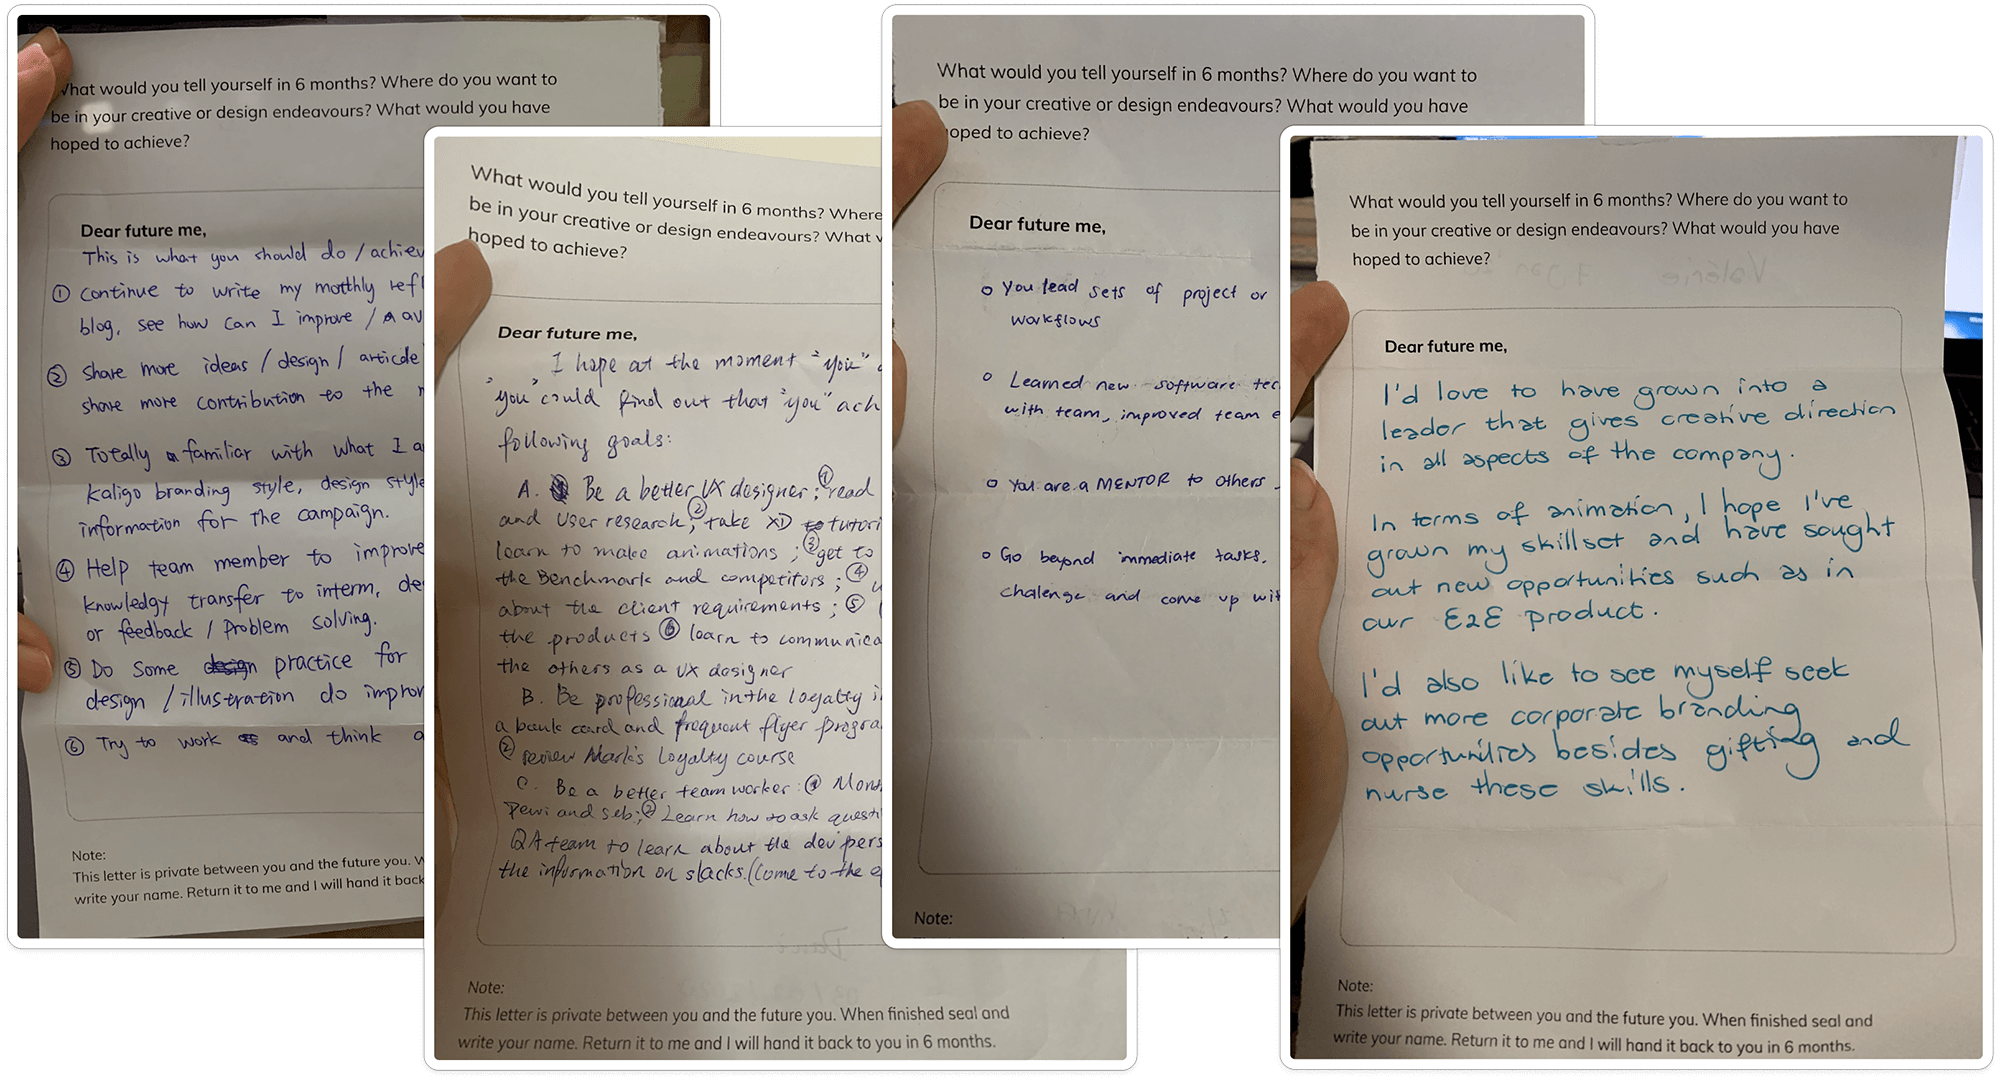 What would you tell yourself in 6 months? Where do you want to
be in your creative or design endeavours? What would you have
hoped to achieve?
Dear future me,
This is what you should do / achiev
① Continue to write my motthly refl
blog, see how can I improve /
② Share more ideas / design / article
share more contribution to the
③ Totally familiar with what I a
kaligo branding style, design style
information for the campaign.
④ Help team member to improve
knowledgy transfer to interm, de
or feedback / problem solving.
⑤ Do some design practice for
design / illustration do improv
⑥ Try to work and think
Note:
This letter is private between you and the future you. W
write your name. Return it to me and I will hand it back
What would you tell yourself in 6 months? Where
be in your creative or design endeavours? What v
hoped to achieve?
Dear future me,
I hope at the moment "you"
"you" could find out that "you" ach
following goals:
A. Be a better UX designer: ① read
and User research; ② take XD tutori
learn to make animations; ③ get to
the Benchmark and competitors; ④
about the client requirements; ⑤
the products ⑥ learn to communica
the others as a UX designer
B. Be professional in the loyalty i
a bank card and frequent flyer progra
② review Mark's Loyalty course
C. Be a better team worker: ① Mon
Dewi and Seb; ② Learn how to ask questi
QA team to learn about the dev
the information on slacks. (Come to the
Note:
This letter is private between you and the future you. When finished seal and
write your name. Return it to me and I will hand it back to you in 6 months.
What would you tell yourself in 6 months? Where do you want to
be in your creative or design endeavours? What would you have
hoped to achieve?
Dear future me,
o You lead sets of project or
workflows
o Learned new software tec
with team, improved team e
o You are a MENTOR to others
o Go beyond immediate tasks.
chalenge and come up wit
Note:
What would you tell yourself in 6 months? Where do you want to
be in your creative or design endeavours? What would you have
hoped to achieve?
Dear future me,
I'd love to have grown into a
leader that gives creative direction
in all aspects of the company.
In terms of animation, I hope I've
grown my skillset and have sought
out new opportunities such as in
our E2E product.
I'd also like to see myself seek
out more corporate branding
opportunities besides gifting and
nurse these skills.
Note:
This letter is private between you and the future you. When finished seal and
write your name. Return it to me and I will hand it back to you in 6 months.